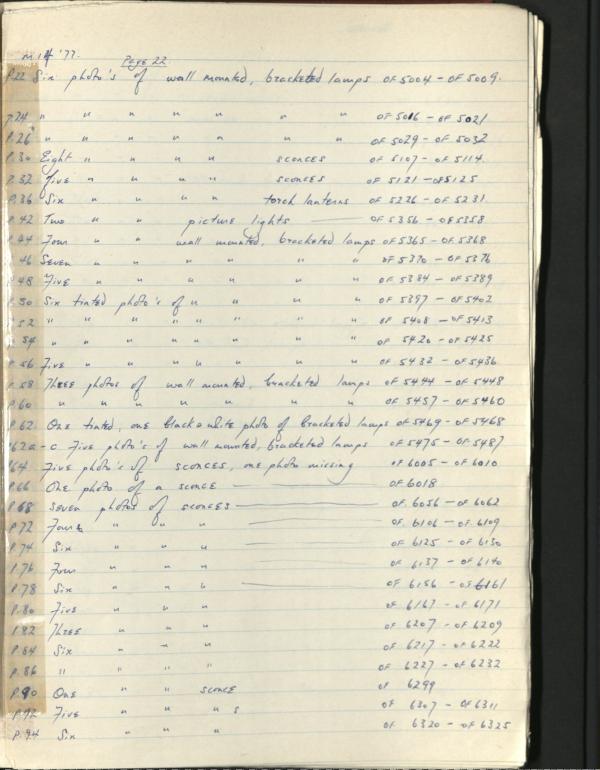 M 14 '77. Page 22
P.22 Six photo's of wall mounted, bracketed lamps OF 5004 - OF 5009.
P.24 " " " " " " " OF 5016 - OF 5021
P.26 " " " " " " " OF 5029 - OF 5032
P.30 Eight " " " " sconces OF 5107 - OF 5114
P.32 Five " " " " sconces OF 5121 - OF 5125
P.36 Six " " " " torch lanterns OF 5226 - OF 5231
P.42 Two " " picture lights OF 5356 - OF 5358
P.44 Four " " wall mounted, bracketed lamps OF 5365 - OF 5368
46 Seven " " " " " " OF 5370 - OF 5376
P.48 Five " " " " " " OF 5384 - OF 5389
P.50 Six tinted photo's of " " " " OF 5397 - OF 5402
P.52 " " " " " " " OF 5408 - OF 5413
54 " " " " " " " OF 5420 - OF 5425
P.56 Five " " " " " " OF 5432 - OF 5436
P.58 Three photos of wall mounted, bracketed lamps OF 5444 - OF 5448
P.60 " " " " " " " OF 5457 - OF 5460
P.62 One tinted, one black & white photo of bracketed lamps OF 5469 - OF 5468
P62a - c Five photo's of wall mounted, bracketed lamps OF 5475 - OF 5487
P64 Five photo's of sconces, one photo missing OF 6005 - OF 6010
P.66 One photo of a sconce OF 6018
P.68 Seven photos of sconces OF 6056 - OF 6062
P.72 Four " " " OF 6106 - OF 6109
P.74 Six " " " OF 6125 - OF 6130
P.76 Four " " " OF 6137 - OF 6140
P.78 Six " " " OF 6156 - OF 6161
P.80 Five " " " OF 6167 - OF 6171
P.82 Three " " " OF 6207 - OF 6209
P.84 Six " " " OF 6217 - OF 6222
P.86 " " " " OF 6227 - OF 6232
P.90 One " " sconce OF 6299
P.92 Five " " " s OF 6307 - OF 6311
P.94 Six " " " OF 6320 - OF 6325